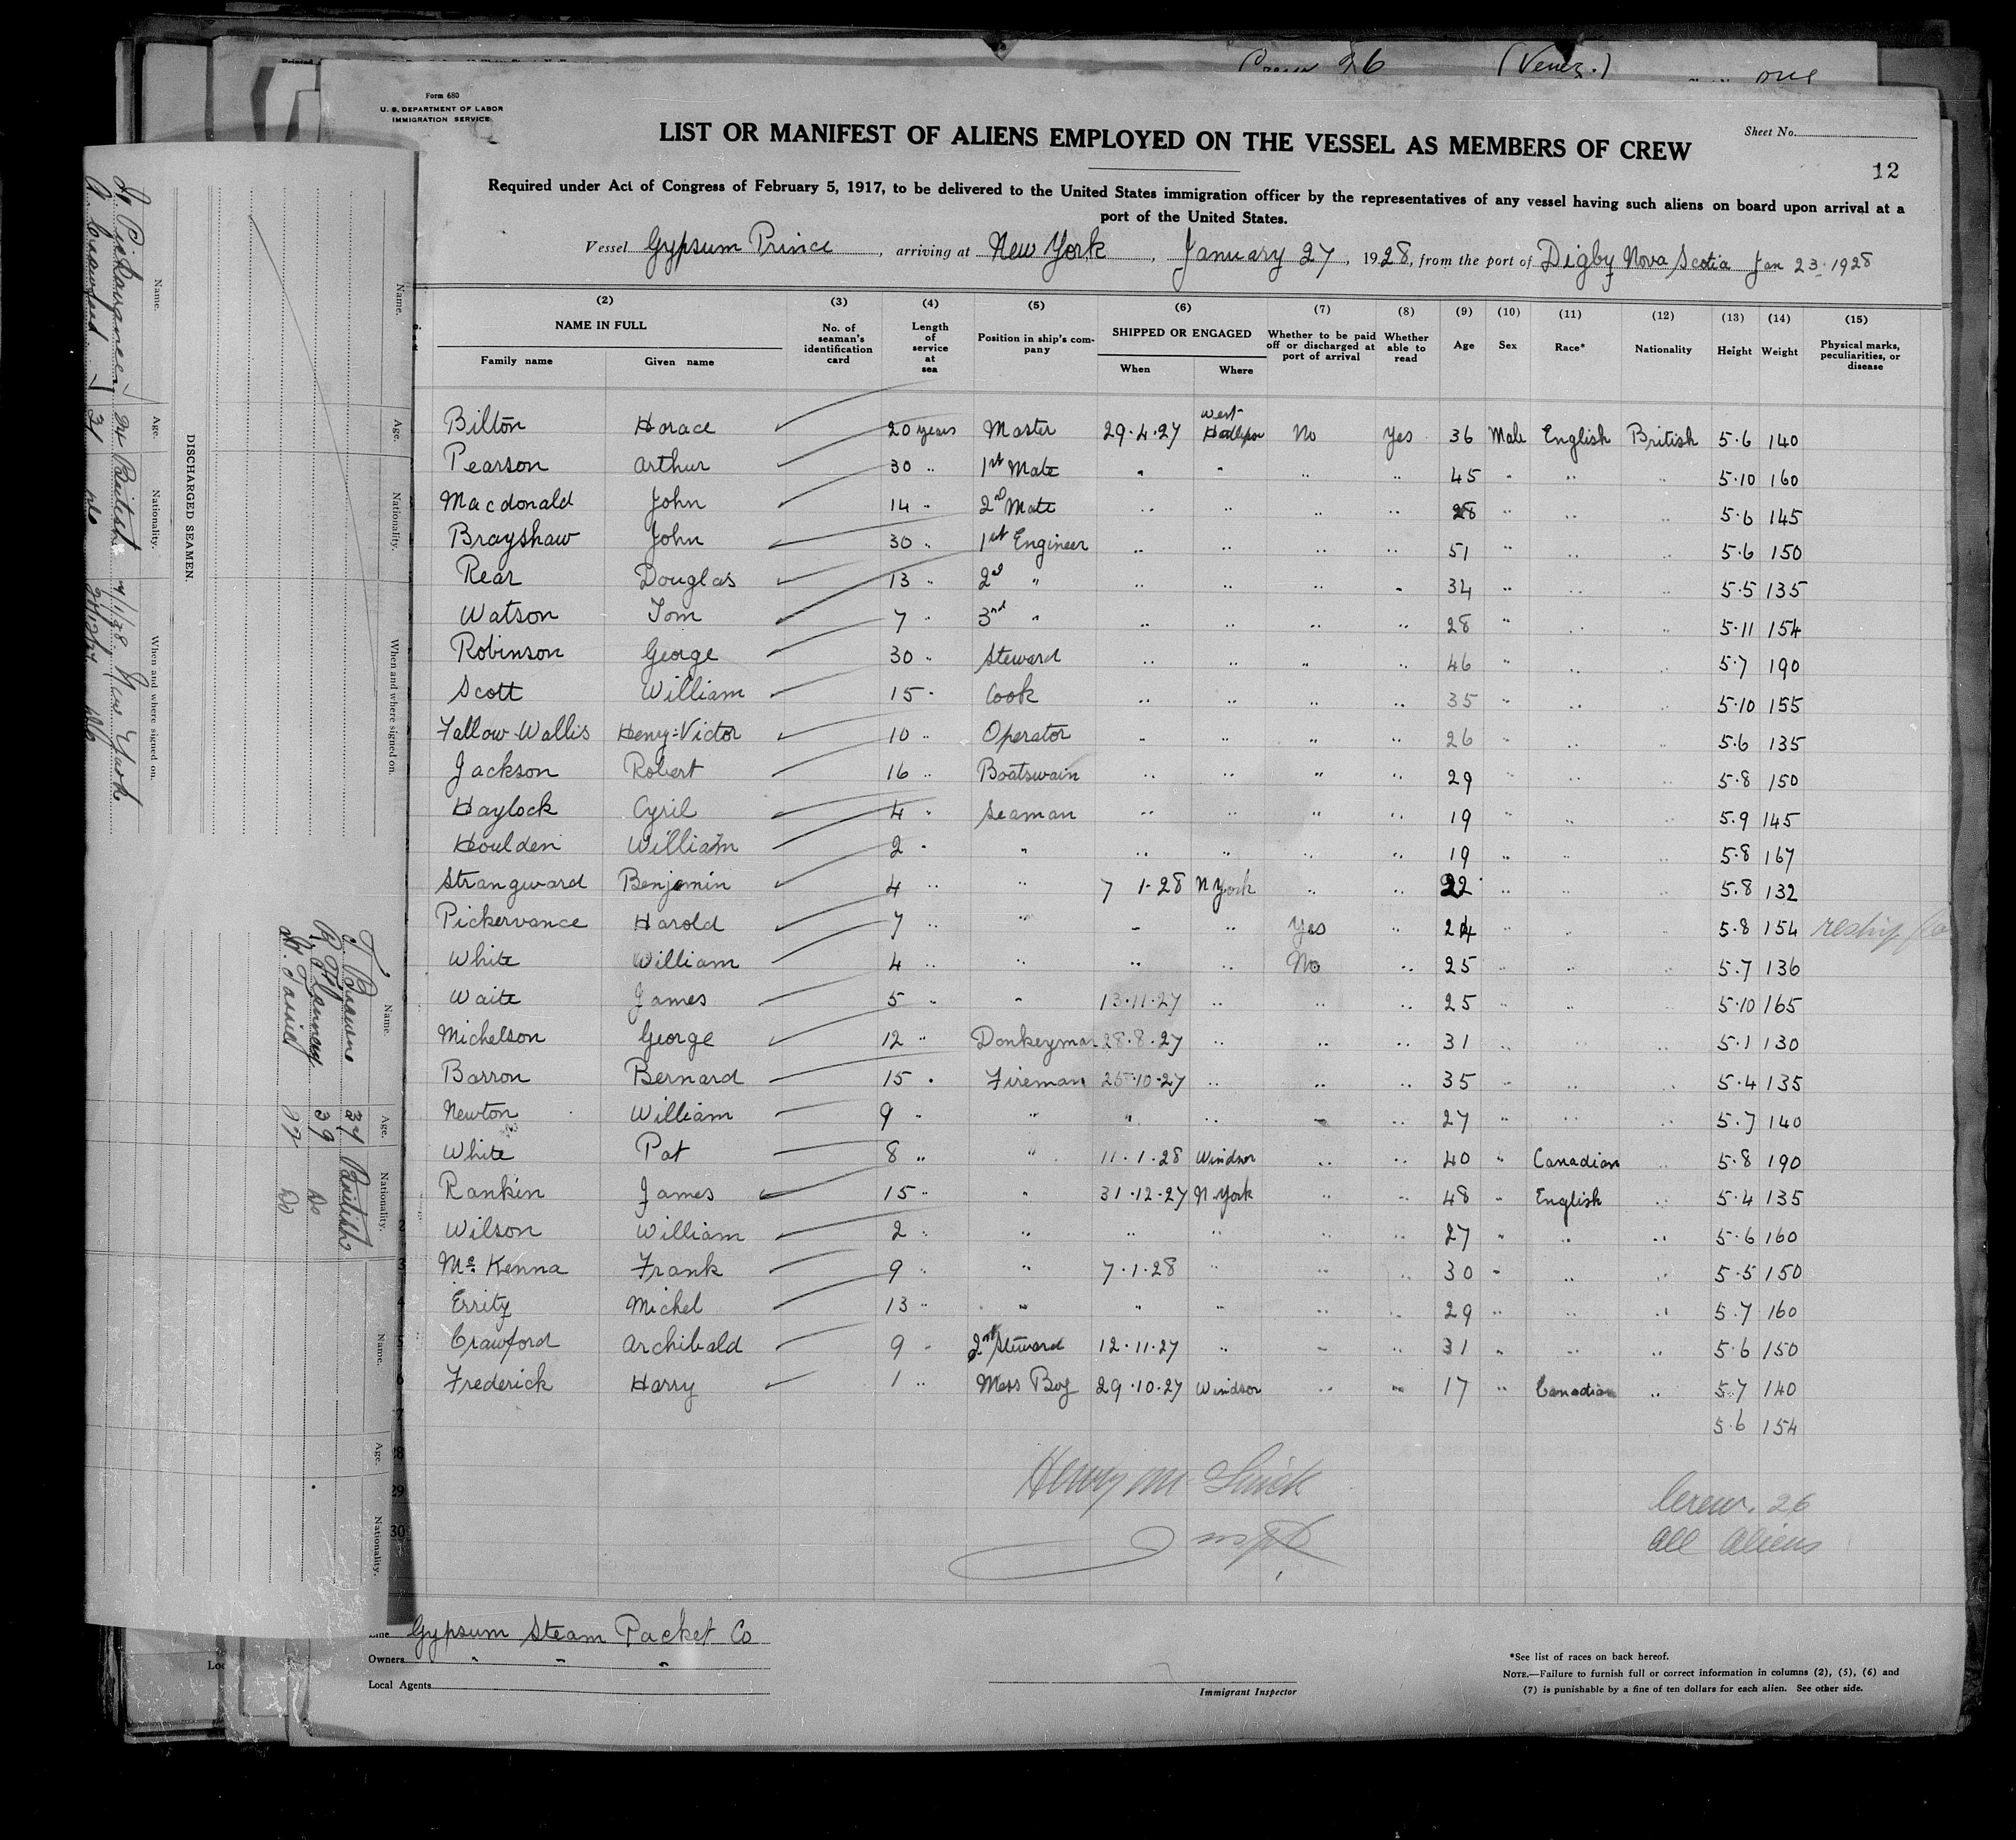 Crew 26 (Venez.)
Form 680
U. S. DEPARTMENT OF LABOR
IMMIGRATION SERVICE
Sheet No.
LIST OR MANIFEST OF ALIENS EMPLOYED ON THE VESSEL AS MEMBERS OF CREW
12
Required under Act of Congress of February 5, 1917, to be delivered to the United States immigration officer by the representatives of any vessel having such aliens on board upon arrival at a
port of the United States.
Vessel Gypsum Prince, arriving at New York, January 27, 1928, from the port of Digby Nova Scotia Jan 23 1928
(2) (3) (4) (5) (6) (7) (8) (9) (10) (11) (12) (13) (14) (15)
NAME IN FULL No. of seaman's identification card Length of service at sea Position in ship's company SHIPPED OR ENGAGED Whether to be paid off or discharged at port of arrival Whether able to read Age Sex Race* Nationality Height Weight Physical marks, peculiarities, or disease
Family name Given name When Where
Bilton Horace 20 years Master 29.4.27 West No Yes 36 Male English British 5.6 140
Pearson Arthur 30 " 1st Mate " " " " 45 " " " 5.10 160
Macdonald John 14 " 2nd Mate " " " " 28 " " " 5.6 145
Brayshaw John 30 " 1st Engineer " " " " 51 " " " 5.6 150
Rear Douglas 13 " 2d " " " " " 34 " " " 5.5 135
Watson Tom 7 " 3rd " " " " " 28 " " " 5.11 154
Robinson George 30 " Steward " " " " 46 " " " 5.7 190
Scott William 15 " Cook " " " " 35 " " " 5.10 155
Fallow-Wallis Henry-Victor 10 " Operator " " " " 26 " " " 5.6 135
Jackson Robert 16 " Boatswain " " " " 29 " " " 5.8 150
Haylock Cyril 4 " Seaman " " " " 19 " " " 5.9 145
Houlden William 2 " " " " " " 19 " " " 5.8 167
Strangward Benjamin 4 " " 7 1.28 N York " " 22 " " " 5.8 132
Pickervance Harold 7 " " " " Yes " 24 " " " 5.8 154 reship
White William 4 " " " " No " 25 " " " 5.7 136
Waite James 5 " " 13.11.27 " " " 25 " " " 5.10 165
Michelson George 12 " Donkeyman 28.8.27 " " " 31 " " " 5.1 130
Barron Bernard 15 " Fireman 25.10.27 " " " 35 " " " 5.4 135
Newton William 9 " " " " " " 27 " " " 5.7 140
White Pat 8 " " 11.1.28 Windsor " " 40 " Canadian " 5.8 190
Rankin James 15 " " 31.12.27 N York " " 48 " English " 5.4 135
Wilson William 2 " " " " " " 27 " " " 5.6 160
McKenna Frank 9 " " 7.1.28 " " " 30 " " " 5.5 150
Errity Michel 13 " " " " " " 29 " " " 5.7 160
Crawford Archibald 9 " 2nd Steward 12.11.27 " " " 31 " " " 5.6 150
Frederick Harry 1 " Mess Boy 29.10.27 Windsor " " 17 " Canadian " 5.7 140
5.6 154
28
29
30
Crew. 26
All Aliens
Line Gypsum Steam Packet Co
Owners " " "
Local Agents
Immigrant Inspector
*See list of races on back hereof.
NOTE.—Failure to furnish full or correct information in columns (2), (5), (6) and
(7) is punishable by a fine of ten dollars for each alien. See other side.
DISCHARGED SEAMEN.
Name. Age. Nationality. When and where signed on.
Hy Pickavance 24 British 7/1/28 New York
A. Crawford 31 do
Name. Age. Nationality. When and where signed on.
Name. Age. Nationality.
T. Browne 34 British
39 Do
Do
Name. Age. Nationality.